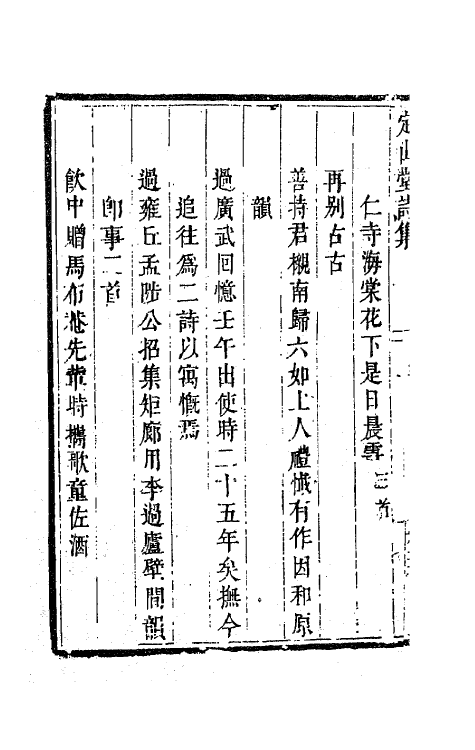 定山堂詩集
仁寺海棠花下是日晨雪三首
再別古古
善持君櫬南歸六如上人禮懺有作因和原
韻
過廣武回憶壬午出使時二十五年矣撫今
追往為二詩以寓慨焉
過雍丘孟陟公招集矩廊用李過廬壁間韻
卽事二首
飲中贈馬布菴先輩時攜歌童佐酒